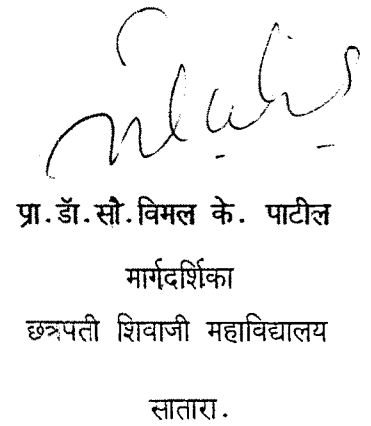 प्रा.डॅा.सौ.विमल के. पाटील
मार्गदर्शिका
छत्रपती शिवाजी महाविद्यालय
सातारा.